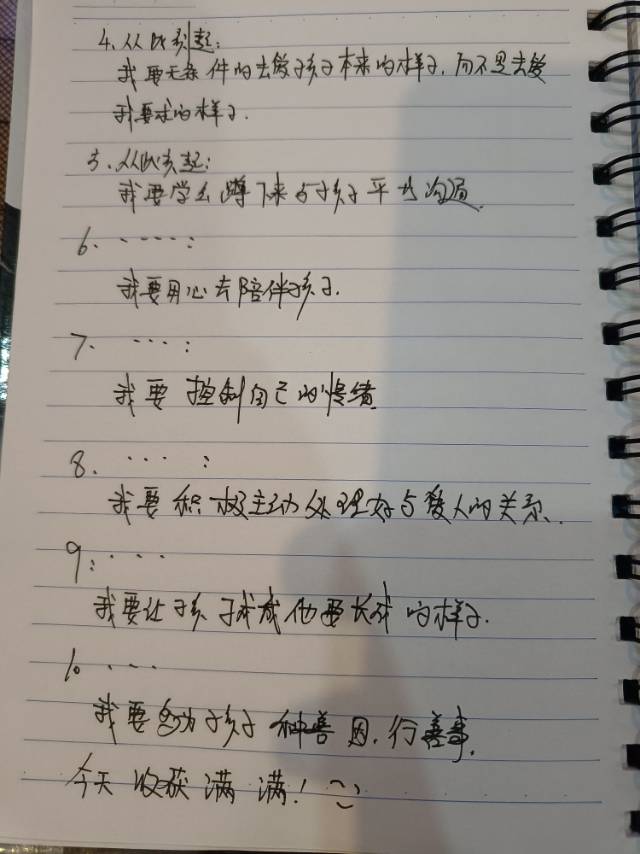 4、从此刻起:
我要无条件的去爱孩子本来的样子,而不是去爱
我要求的样子.
5、从此刻起:
我要学会蹲下来与孩子平等沟通.
6、·····:
我要用心去陪伴孩子.
7、····:
我要控制自己的情绪
8、····:
我要积极主动处理好与爱人的关系.
9:····
我要让孩子成他要长成的样子.
10、···
我要为孩子种善因,行善事.
今天收获满满!